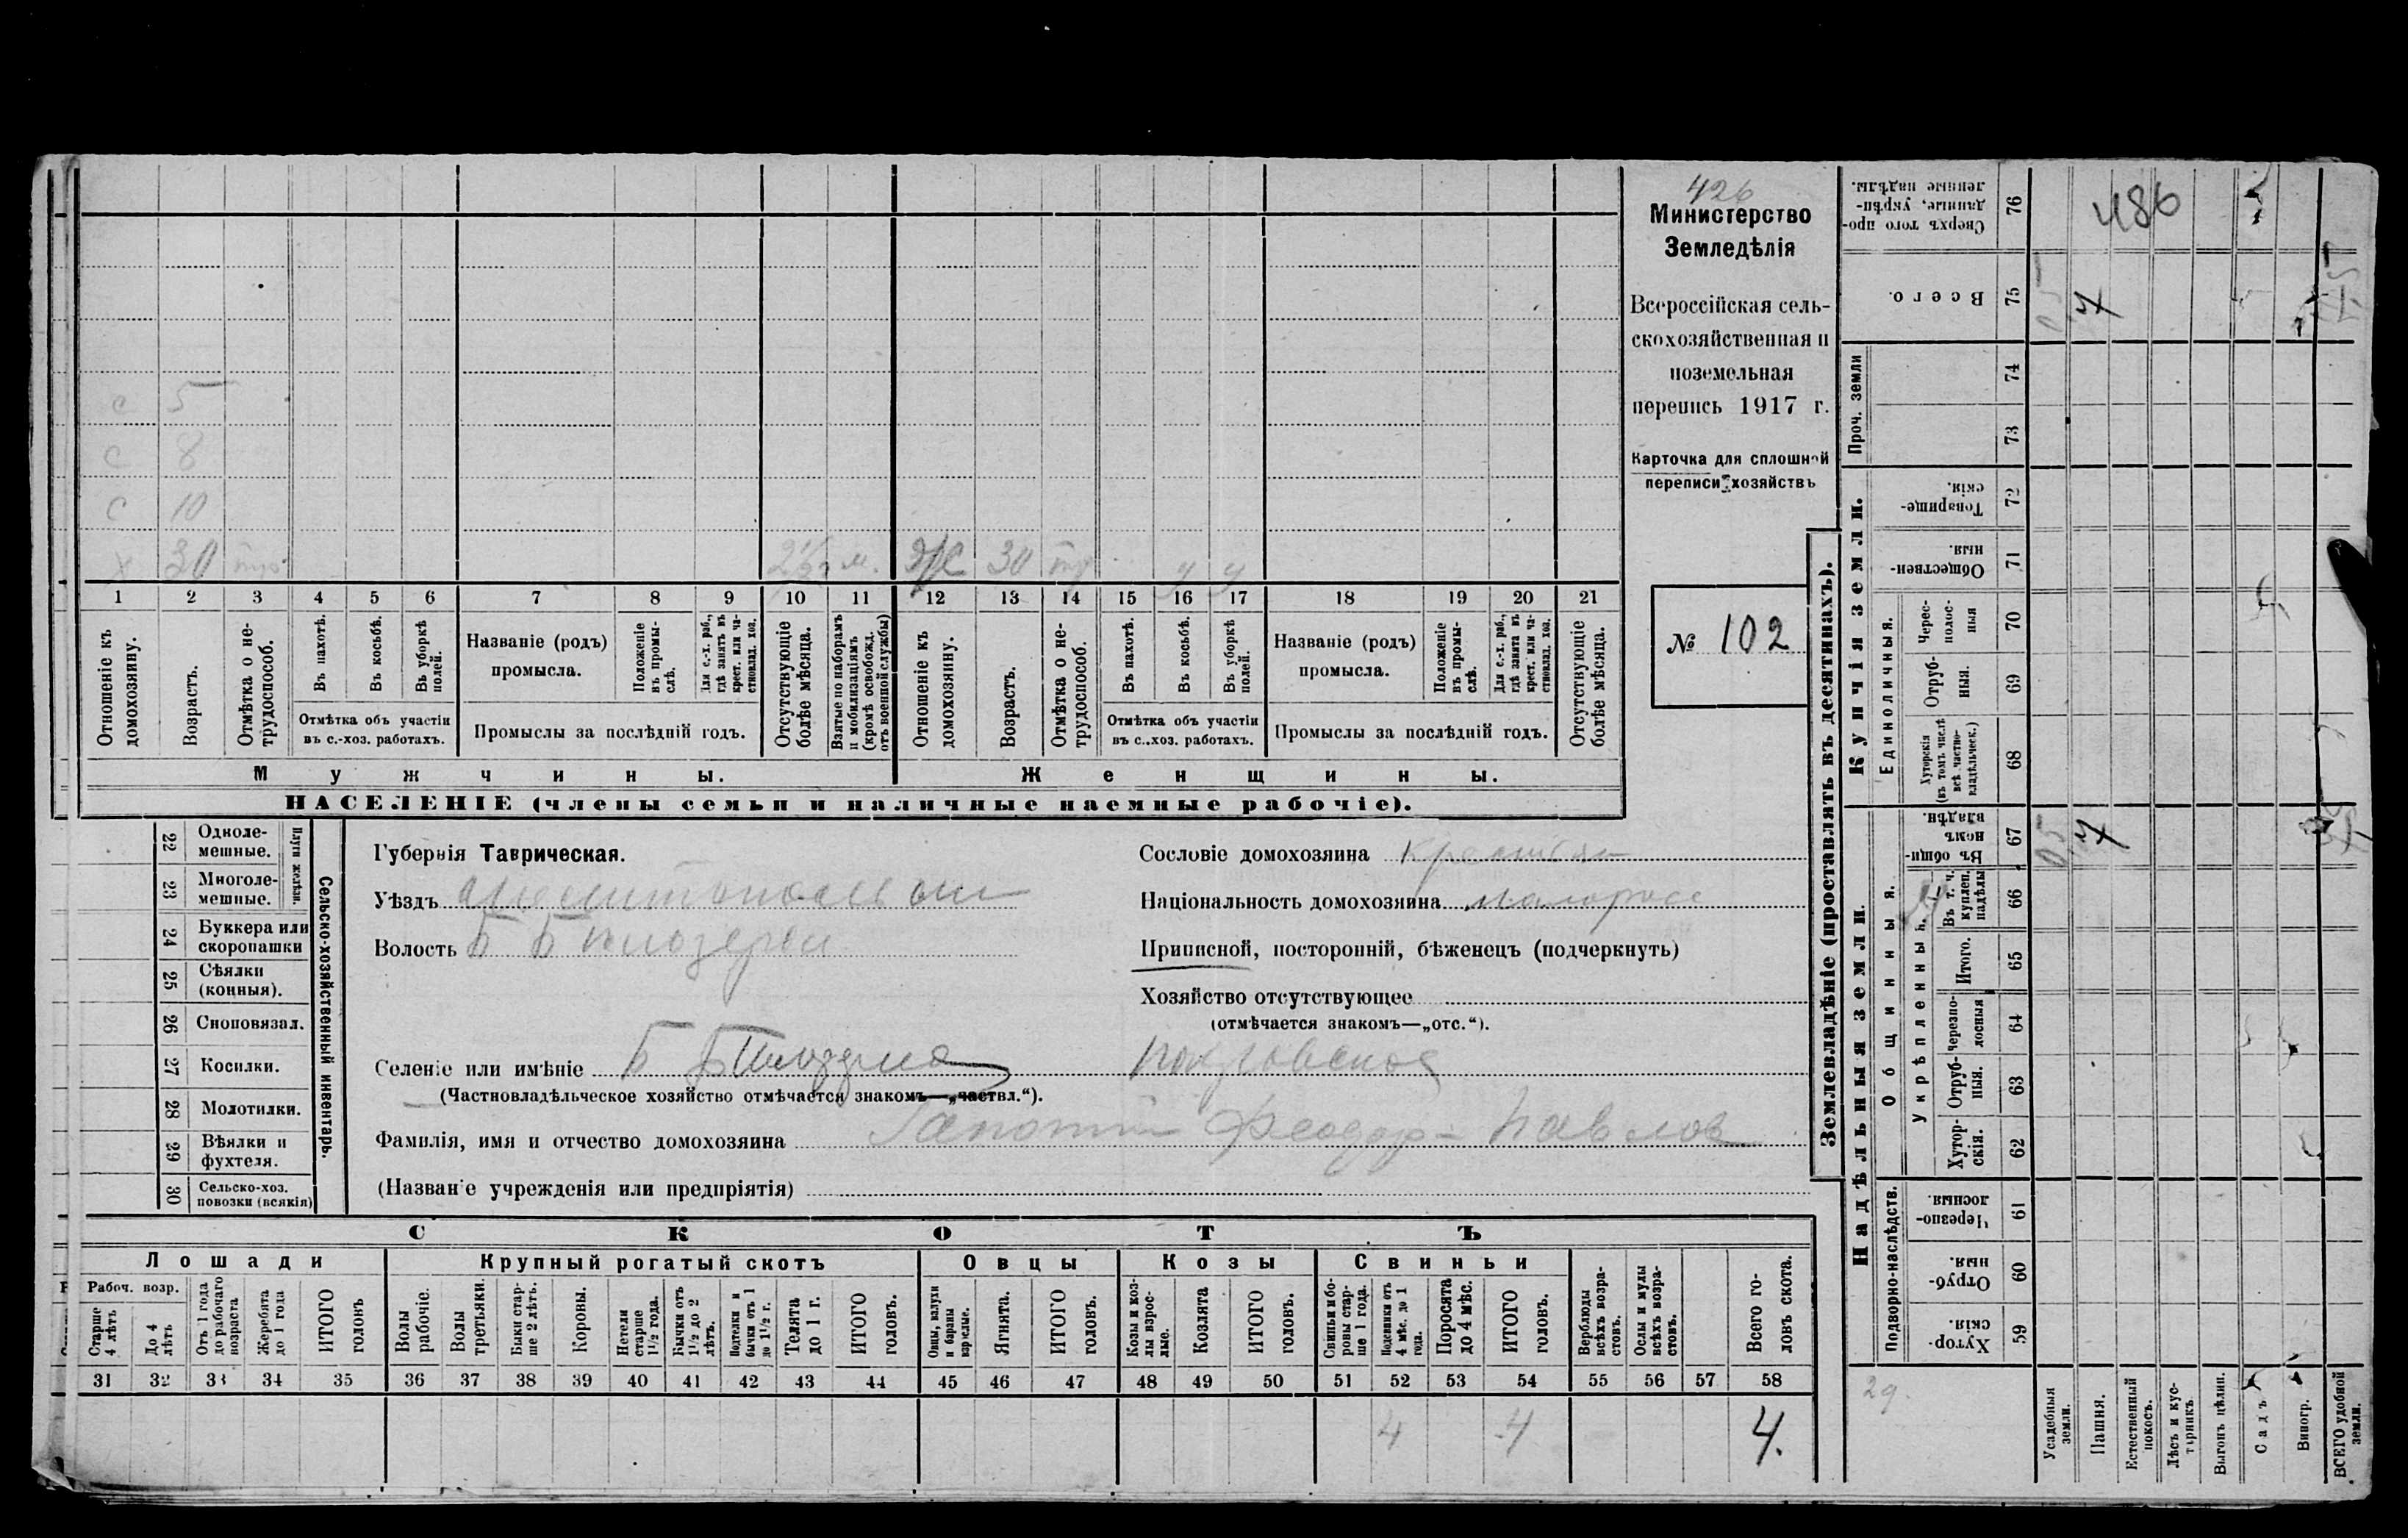 426
Министерство
Земледѣлія
Всероссійская сель-
скохозяйственная и
поземельная
перепись 1917 г.
Карточка для сплошной
переписи хозяйствъ
№ 102
с 5
с 8
с 10
х 30
30
1 2 3 4 5 6 7 8 9 10 11 12 13 14 15 16 17 18 19 20 21
Отношеніе къ домохозяину.
Возрастъ.
Отмѣтка о не-трудоспособ.
Въ пахотѣ.
Въ косьбѣ.
Въ уборкѣ полей.
Отмѣтка объ участіи
въ с.-хоз. работахъ.
Названіе (родъ)
промысла.
Положеніе въ промы-слѣ.
Для с.-х. раб., гдѣ занятъ въ крест. или ча-стновлад. хоз.
Промыслы за послѣдній годъ.
Отсутствующіе болѣе мѣсяца.
Взятые по наборамъ и мобилизаціямъ (кромѣ освобожд. отъ военной службы)
Отношеніе къ домохозяину.
Возрастъ.
Отмѣтка о не-трудоспособ.
Въ пахотѣ.
Въ косьбѣ.
Въ уборкѣ полей.
Отмѣтка объ участіи
въ с..хоз. работахъ.
Названіе (родъ)
промысла.
Положеніе въ промы-слѣ.
Для с.-х. раб., гдѣ занята въ крест. или ча-стновлад. хоз.
Промыслы за послѣдній годъ.
Отсутствующіе болѣе мѣсяца.
Мужчины.
Женщины.
НАСЕЛЕНІЕ (члены семьи и наличные наемные рабочіе).
22 Однолемешные.
23 Многолемешные.
Плуги желѣзн.
24 Буккера или скоропашки
25 Сѣялки (конныя).
26 Сноповязал.
27 Косилки.
28 Молотилки.
29 Вѣялки и фухтеля.
30 Сельско-хоз. повозки (всякія)
Сельско-хозяйственный инвентарь.
Губернія Таврическая.
Уѣздъ Мелитопольский
Волость Б Бѣлозерск
Селеніе или имѣніе Б Бѣлозерка Покровское
(Частновладѣльческое хозяйство отмѣчается знакомъ—„частвл.“).
Фамилія, имя и отчество домохозяина Гапотий Феодор Павлов
(Названіе учрежденія или предпріятія)
Сословіе домохозяина Крестьян
Національность домохозяина малоросс
Приписной, посторонній, бѣженецъ (подчеркнуть)
Хозяйство отсутствующее
(отмѣчается знакомъ—„отс.“).
СКОТЪ
Лошади
Крупный рогатый скотъ
Овцы
Козы
Свиньи
Рабоч. возр.
Старше 4 лѣтъ
До 4 лѣтъ
Отъ 1 года до рабочаго возраста
Жеребята до 1 года
ИТОГО головъ
Волы рабочіе.
Волы третьяки.
Быки стар-ше 2 лѣтъ.
Коровы.
Нетели старше 1½ года.
Бычки отъ 1½ до 2 лѣтъ.
Подтелки и бычки отъ 1 до 1½ г.
Телята до 1 г.
ИТОГО головъ.
Овцы, валухи и бараны взрослые.
Ягнята.
ИТОГО головъ.
Козы и коз-лы взрос-лые.
Козлята
ИТОГО головъ.
Свиньи и бо-ровы стар-ше 1 года.
Подсвинки отъ 4 мѣс. до 1 года.
Поросята до 4 мѣс.
ИТОГО головъ.
Верблюды всѣхъ возра-стовъ.
Ослы и мулы всѣхъ возра-стовъ.
Всего го-ловъ скота.
31 32 33 34 35 36 37 38 39 40 41 42 43 44 45 46 47 48 49 50 51 52 53 54 55 56 57 58
4 4 4.
Землевладѣніе (проставлять въ десятинахъ).
Надѣльныя земли.
Купчія земли.
Проч. земли
Подворно-наслѣдств.
Общинныя.
Укрѣпленныя.
Единоличныя.
Хутор-скія. 59
Отруб-ныя. 60
Черезпо-лосныя. 61
Хутор-скія. 62
Отруб-ныя. 63
Черезпо-лосныя 64
Итого. 65
Въ т. ч. куплен. надѣлы 66
Въ общи-номъ владѣн. 67
Хуторскія (въ томъ числѣ всѣ частно-владѣльческ.) 68
Отруб-ныя. 69
Черес-полос-ныя 70
Обществен-ныя. 71
Товарище-скія. 72
73
74
Всего. 75
Сверхъ того про-данные, укрѣп-ленные надѣлы. 76
486
05 4
05 4
29.
Усадебныя земли.
Пашня.
Естественный покосъ.
Лѣсъ и кус-тарникъ
Выгонъ цѣлин.
Садъ
Виногр.
ВСЕГО удобной земли.